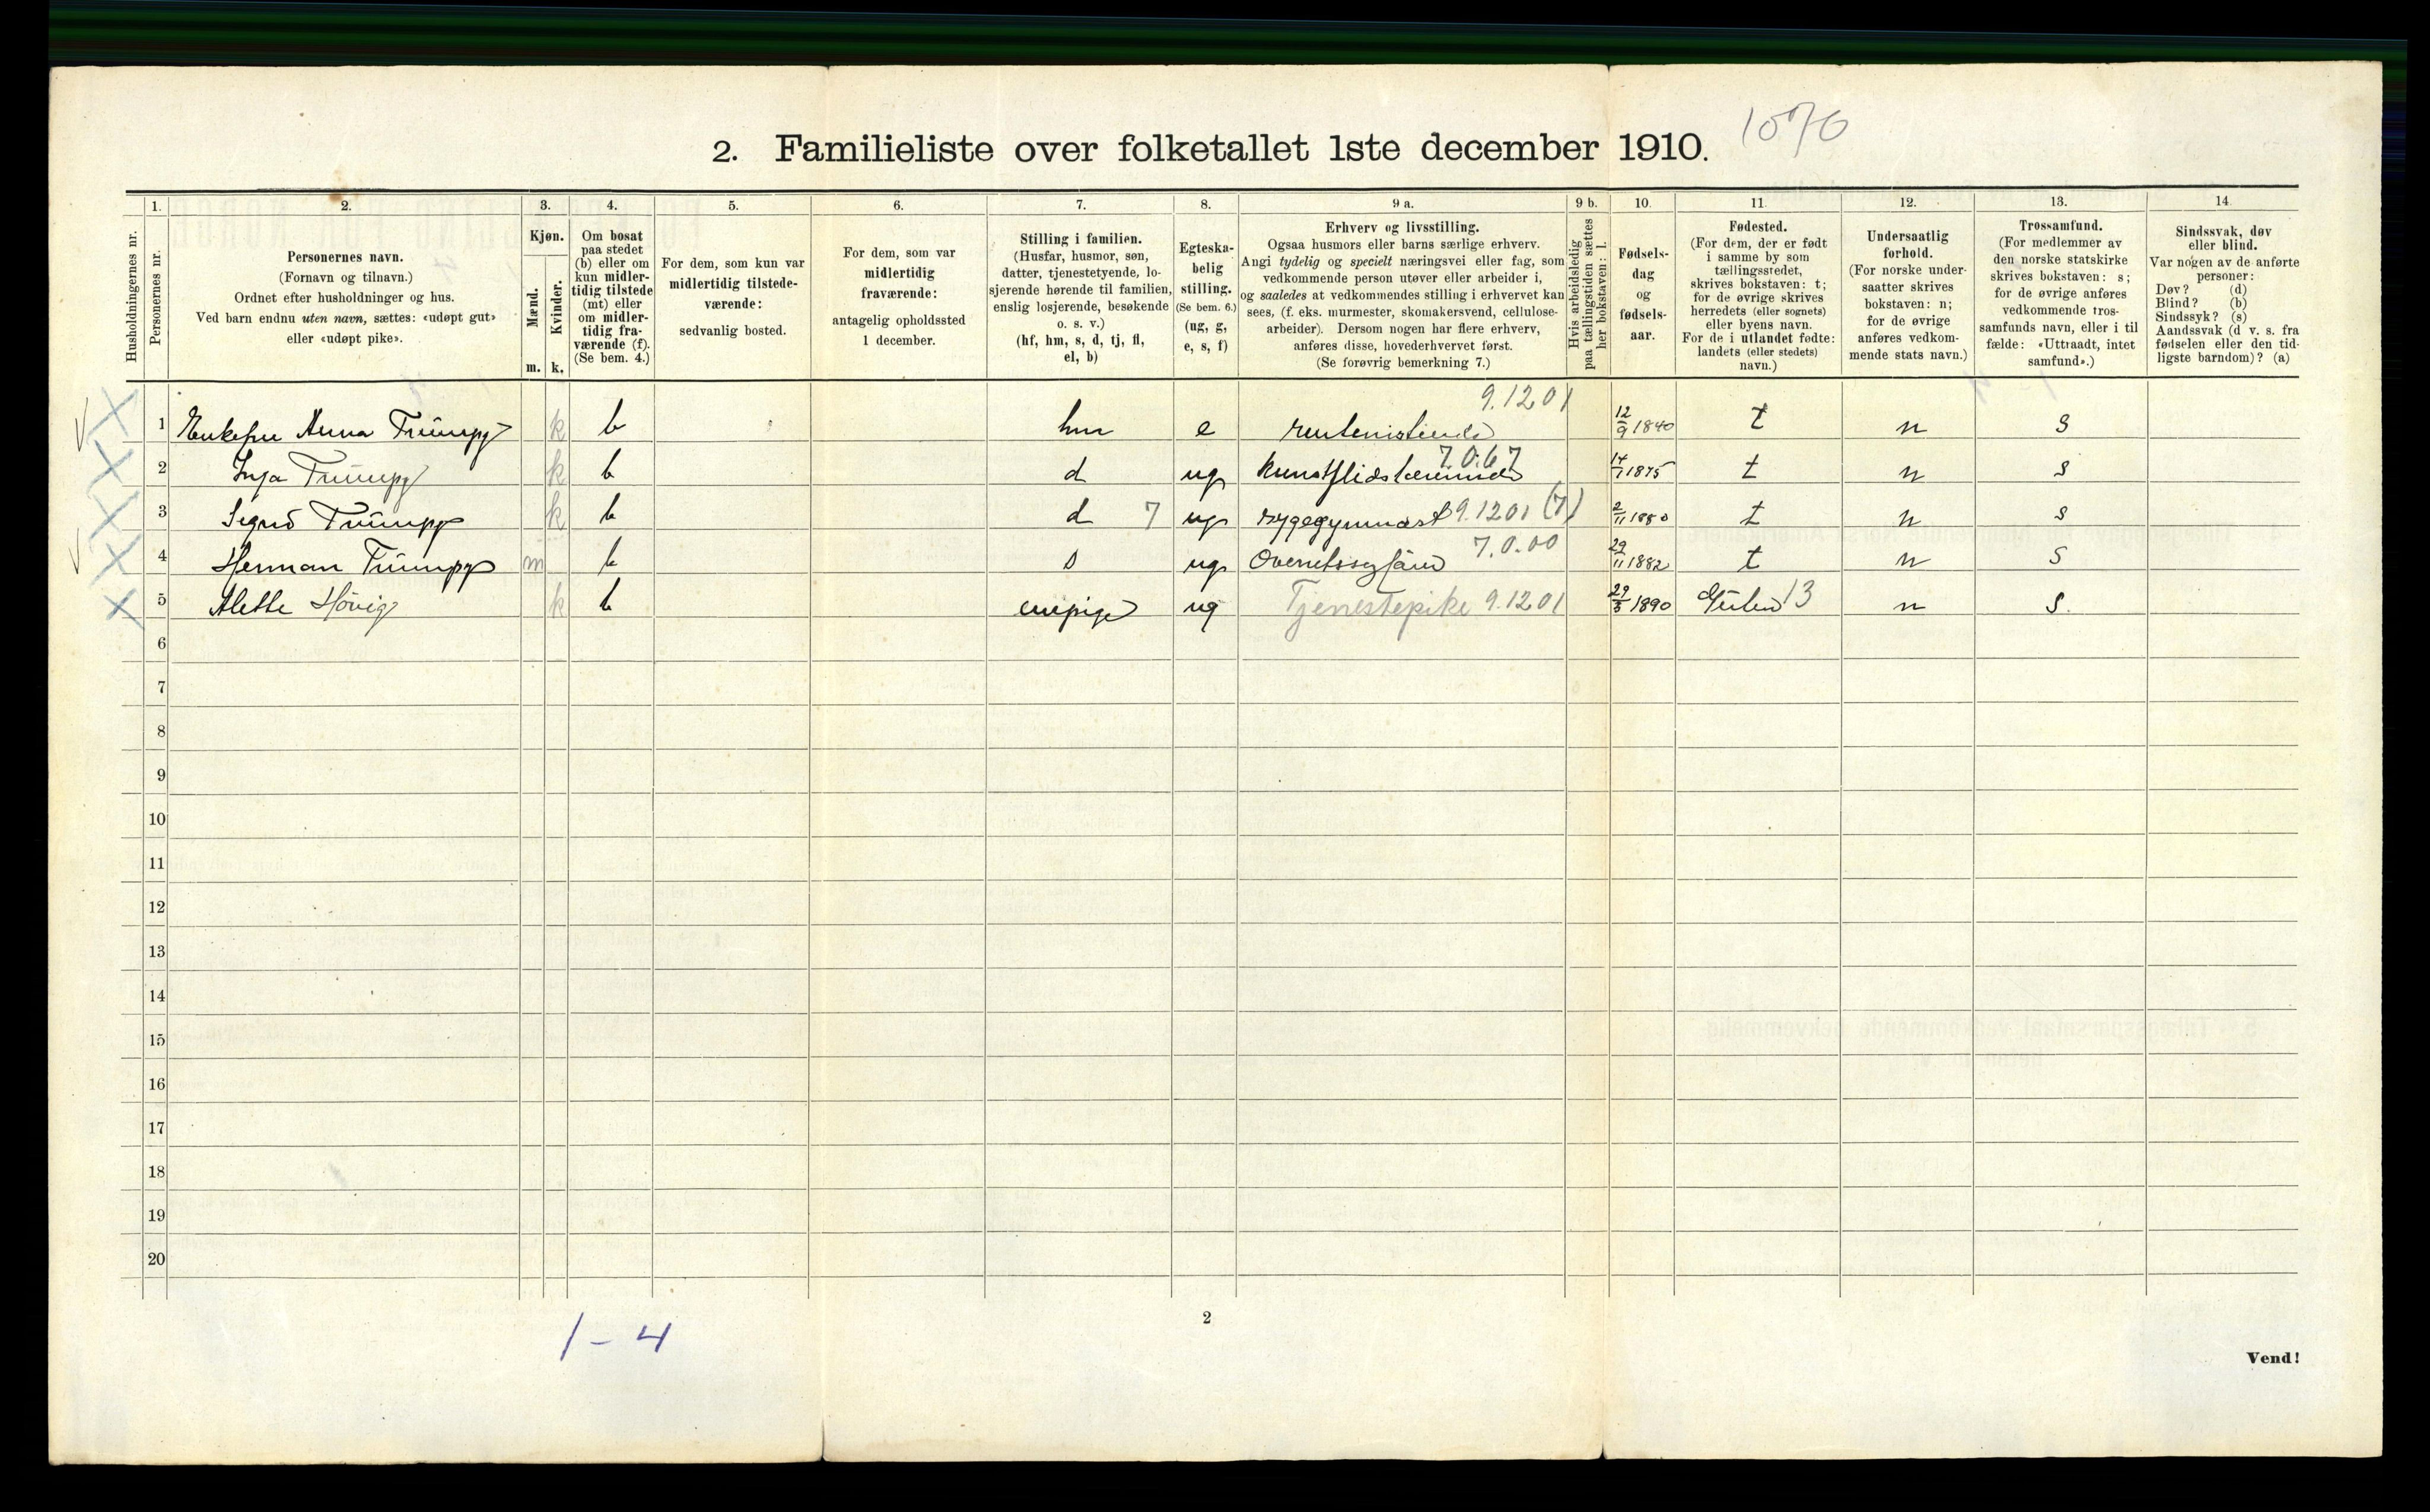 1070
2. Familieliste over folketallet 1ste december 1910.
1. 2. 3. 4. 5. 6. 7. 8. 9 a. 9 b. 10. 11. 12. 13. 14
Husholdningernes nr.
Personernes nr.
Personernes navn.
(Fornavn og tilnavn.)
Ordnet efter husholdninger og hus.
Ved barn endnu uten navn, sættes: «udøpt gut»
eller «udøpt pike».
Kjøn.
Mænd.
Kvinder.
m. k.
Om bosat
paa stedet
(b) eller om
kun midler-
tidig tilstede
(mt) eller
om midler-
tidig fra-
værende (f).
(Se bem. 4.)
For dem, som kun var
midlertidig tilstede-
værende:
sedvanlig bosted.
For dem, som var
midlertidig
fraværende:
antagelig opholdssted
1 december.
Stilling i familien.
(Husfar, husmor, søn,
datter, tjenestetyende, lo-
sjerende hørende til familien,
enslig losjerende, besøkende
o. s. v.)
(hf, hm, s, d, tj, fl,
el, b)
Egteska-
belig
stilling.
(Se bem. 6.)
(ug, g,
e, s, f)
Erhverv og livsstilling.
Ogsaa husmors eller barns særlige erhverv.
Angi tydelig og specielt næringsvei eller fag, som
vedkommende person utøver eller arbeider i,
og saaledes at vedkommendes stilling i erhvervet kan
sees, (f. eks. murmester, skomakersvend, cellulose-
arbeider). Dersom nogen har flere erhverv,
anføres disse, hovederhvervet først.
(Se forøvrig bemerkning 7.)
Hvis arbeidsledig
paa tællingstiden sættes
her bokstaven: l.
Fødsels-
dag
og
fødsels-
aar.
Fødested.
(For dem, der er født
i samme by som
tællingsstedet,
skrives bokstaven: t;
for de øvrige skrives
herredets (eller sognets)
eller byens navn.
For de i utlandet fødte:
landets (eller stedets)
navn.)
Undersaatlig
forhold.
(For norske under-
saatter skrives
bokstaven: n;
for de øvrige
anføres vedkom-
mende stats navn.)
Trossamfund.
(For medlemmer av
den norske statskirke
skrives bokstaven: s;
for de øvrige anføres
vedkommende tros-
samfunds navn, eller i til
fælde: «Uttraadt, intet
samfund».)
Sindssvak, døv
eller blind.
Var nogen av de anførte
personer:
Døv? (d)
Blind? (b)
Sindssyk? (s)
Aandssvak (d v. s. fra
fødselen eller den tid-
ligste barndom)? (a)
9.1201
1 Enkefru Anna Trümpy k b hm e rentenistinde 12/9 1840 t n s
7.0.67
2 Inga Trümpy k b d ug kunstflidslærerinde 14/1 1875 t n s
3 Sigrid Trümpy k b d 7 ug sygegymnast 9.1201 (7) 2/11 1880 t n s
7.0.00
4 Herman Trümpy m b s ug Overretssagfører 29/11 1882 t n s
5 Alette Hövig k b enepige ug Tjenestepike 9.1201 29/3 1890 Gulen 13 n s.
6
7
8
9
10
11
12
13
14
15
16
17
18
19
20
1-4
2
Vend!